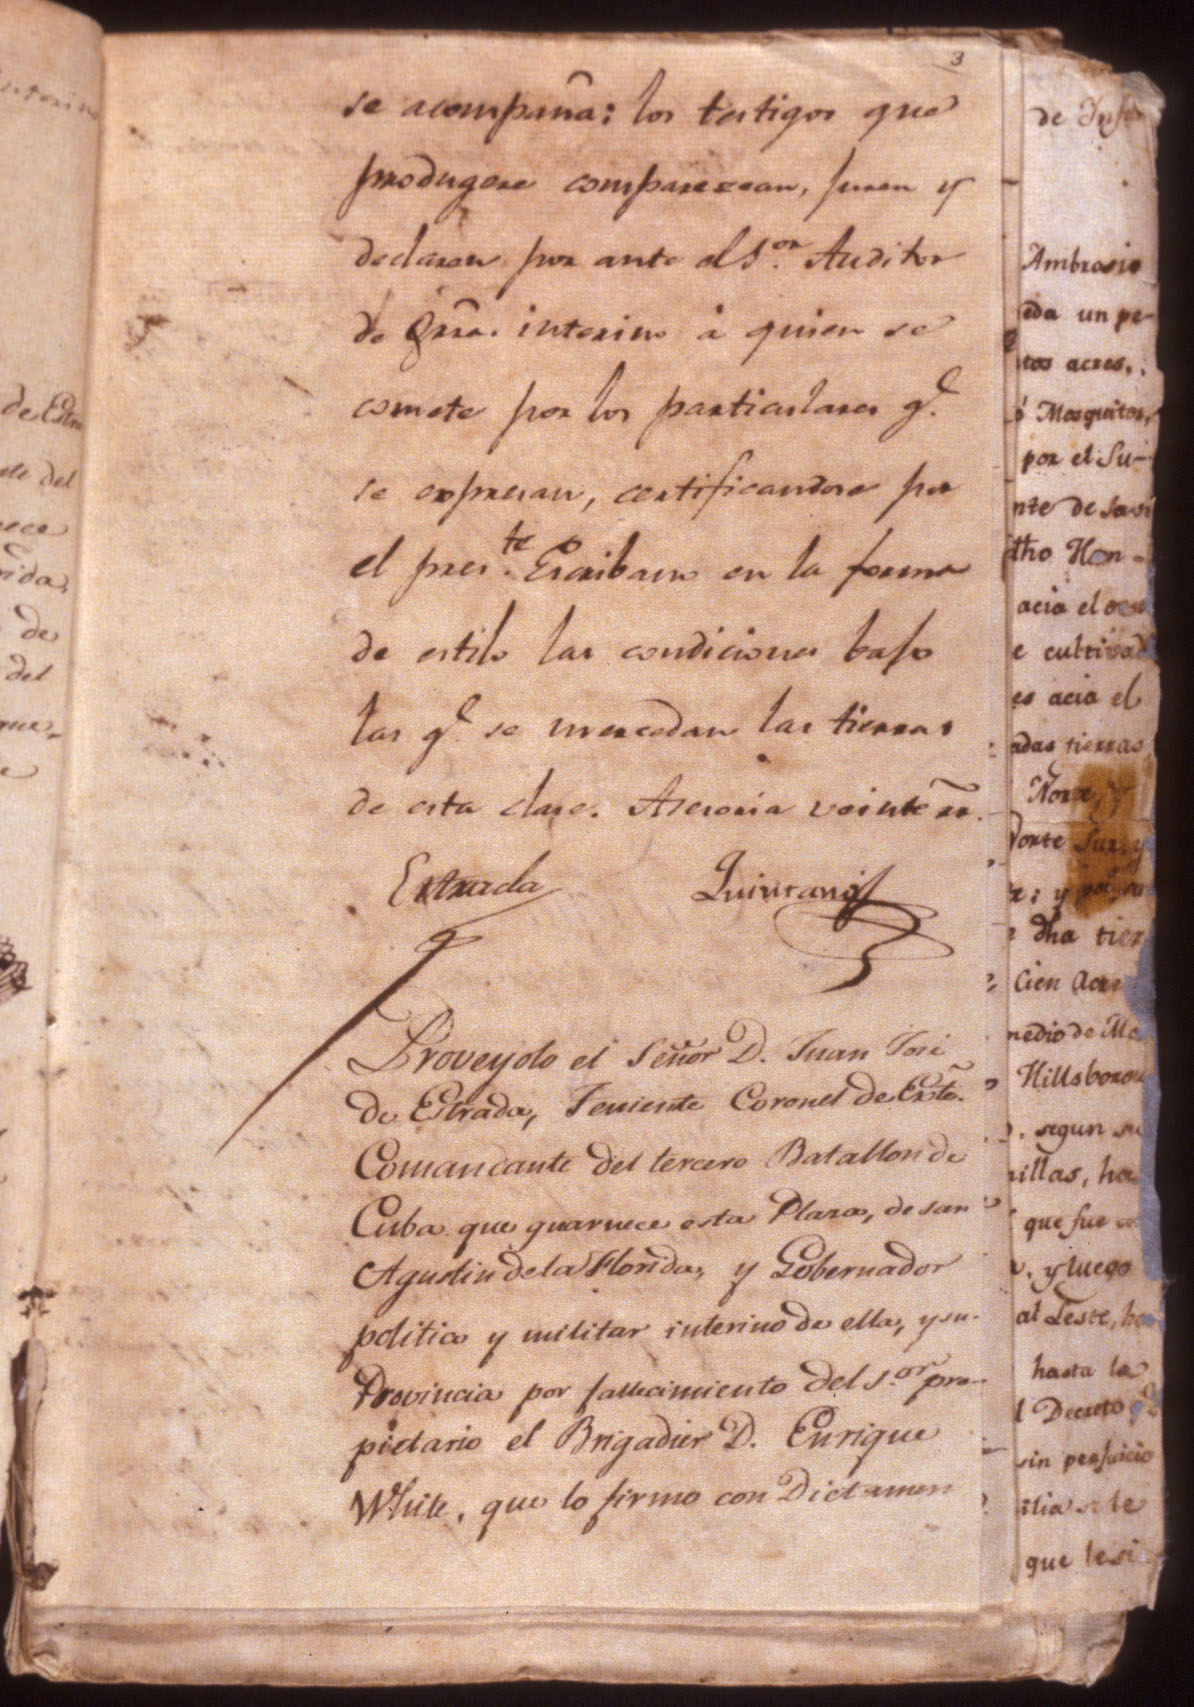 3
se acompaña: los testigos que
produgere comparezcan, juren y
declaren por ante el S.or Auditor
de Grra. interino à quien se
comete por los particulares q.e
se expresan, certificandose por
el pres.te Escribano en la forma
de estilo las condiciones bajo
las q.e se mercedan las tierras
de esta clase. Asesoria veinte rr.
Estrada Quintana
Proveyolo el Señor D. Juan José
de Estrada, Teniente Coronel de Exto.
Comandante del tercero Batallon de
Cuba que guarnece esta Plaza, de san
Agustin de la Florida, y Gobernador
politico y militar interino de ella, y su
Provincia por fallecimiento del s.or pro-
pietario el Brigadier D. Enrique
White, que lo firmo con Dictamen
de Estra
del
de
del
que,
de
Ambrosio
eda un pe-
tos acres,
Mosquitos,
por el Su-
nte de
dho Hon-
acia el
e cultivad
es acia el
adas tierras
Norte, y
Norte Sur, y
; y por
dha tier
Cien Acre
medio de
Hillsborou
segun su
millas, ha
que fue
y luego
al Leste, ha
hasta la
Decreto
sin perjuicio
ilia se le
que le si